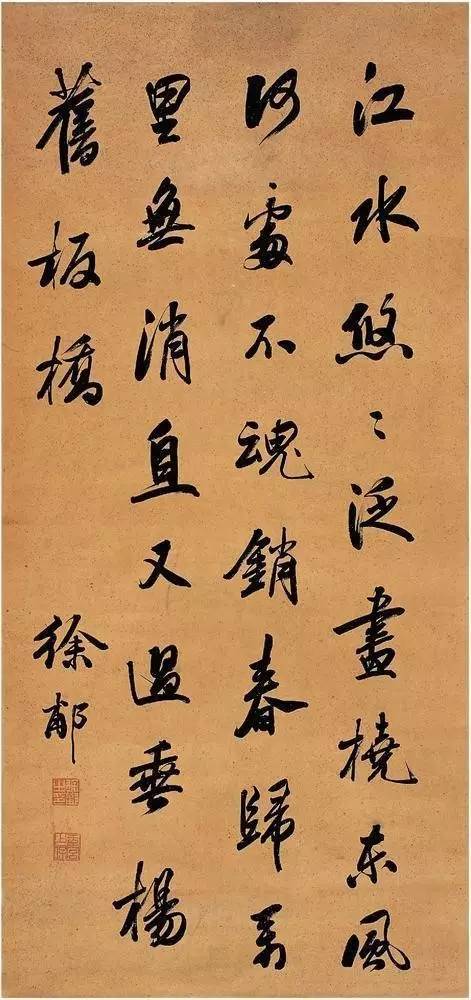 江水悠〻泛畫橈东風
何處不魂銷春歸万
里無消息又過垂楊
舊板橋
徐郙